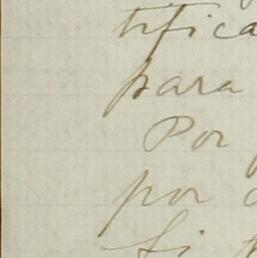 tifica
para
Por
por
Si